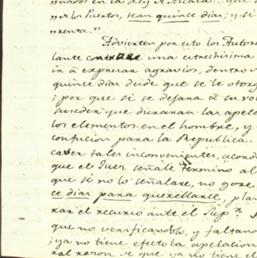 "de los Puertos, sean quince dias; y si
"renta."
Advierten por eso los Autores
lante una
in á expresar agravios, dentro
quince dias desde que se le otorg
; por que si se dejara á su vo
suceder que duraran las apela
los elementos en el hombre, y
confusion para la Republica.
caver tales inconvenientes, acord
que el Juez señale termino al
que si no lo señalare, no goze
ce dias para querellarse, pla
rar el recurso ante el Supr.
que no verificandolo, y faltano
; ya no tiene efecto la apelacion
que ya no tiene el